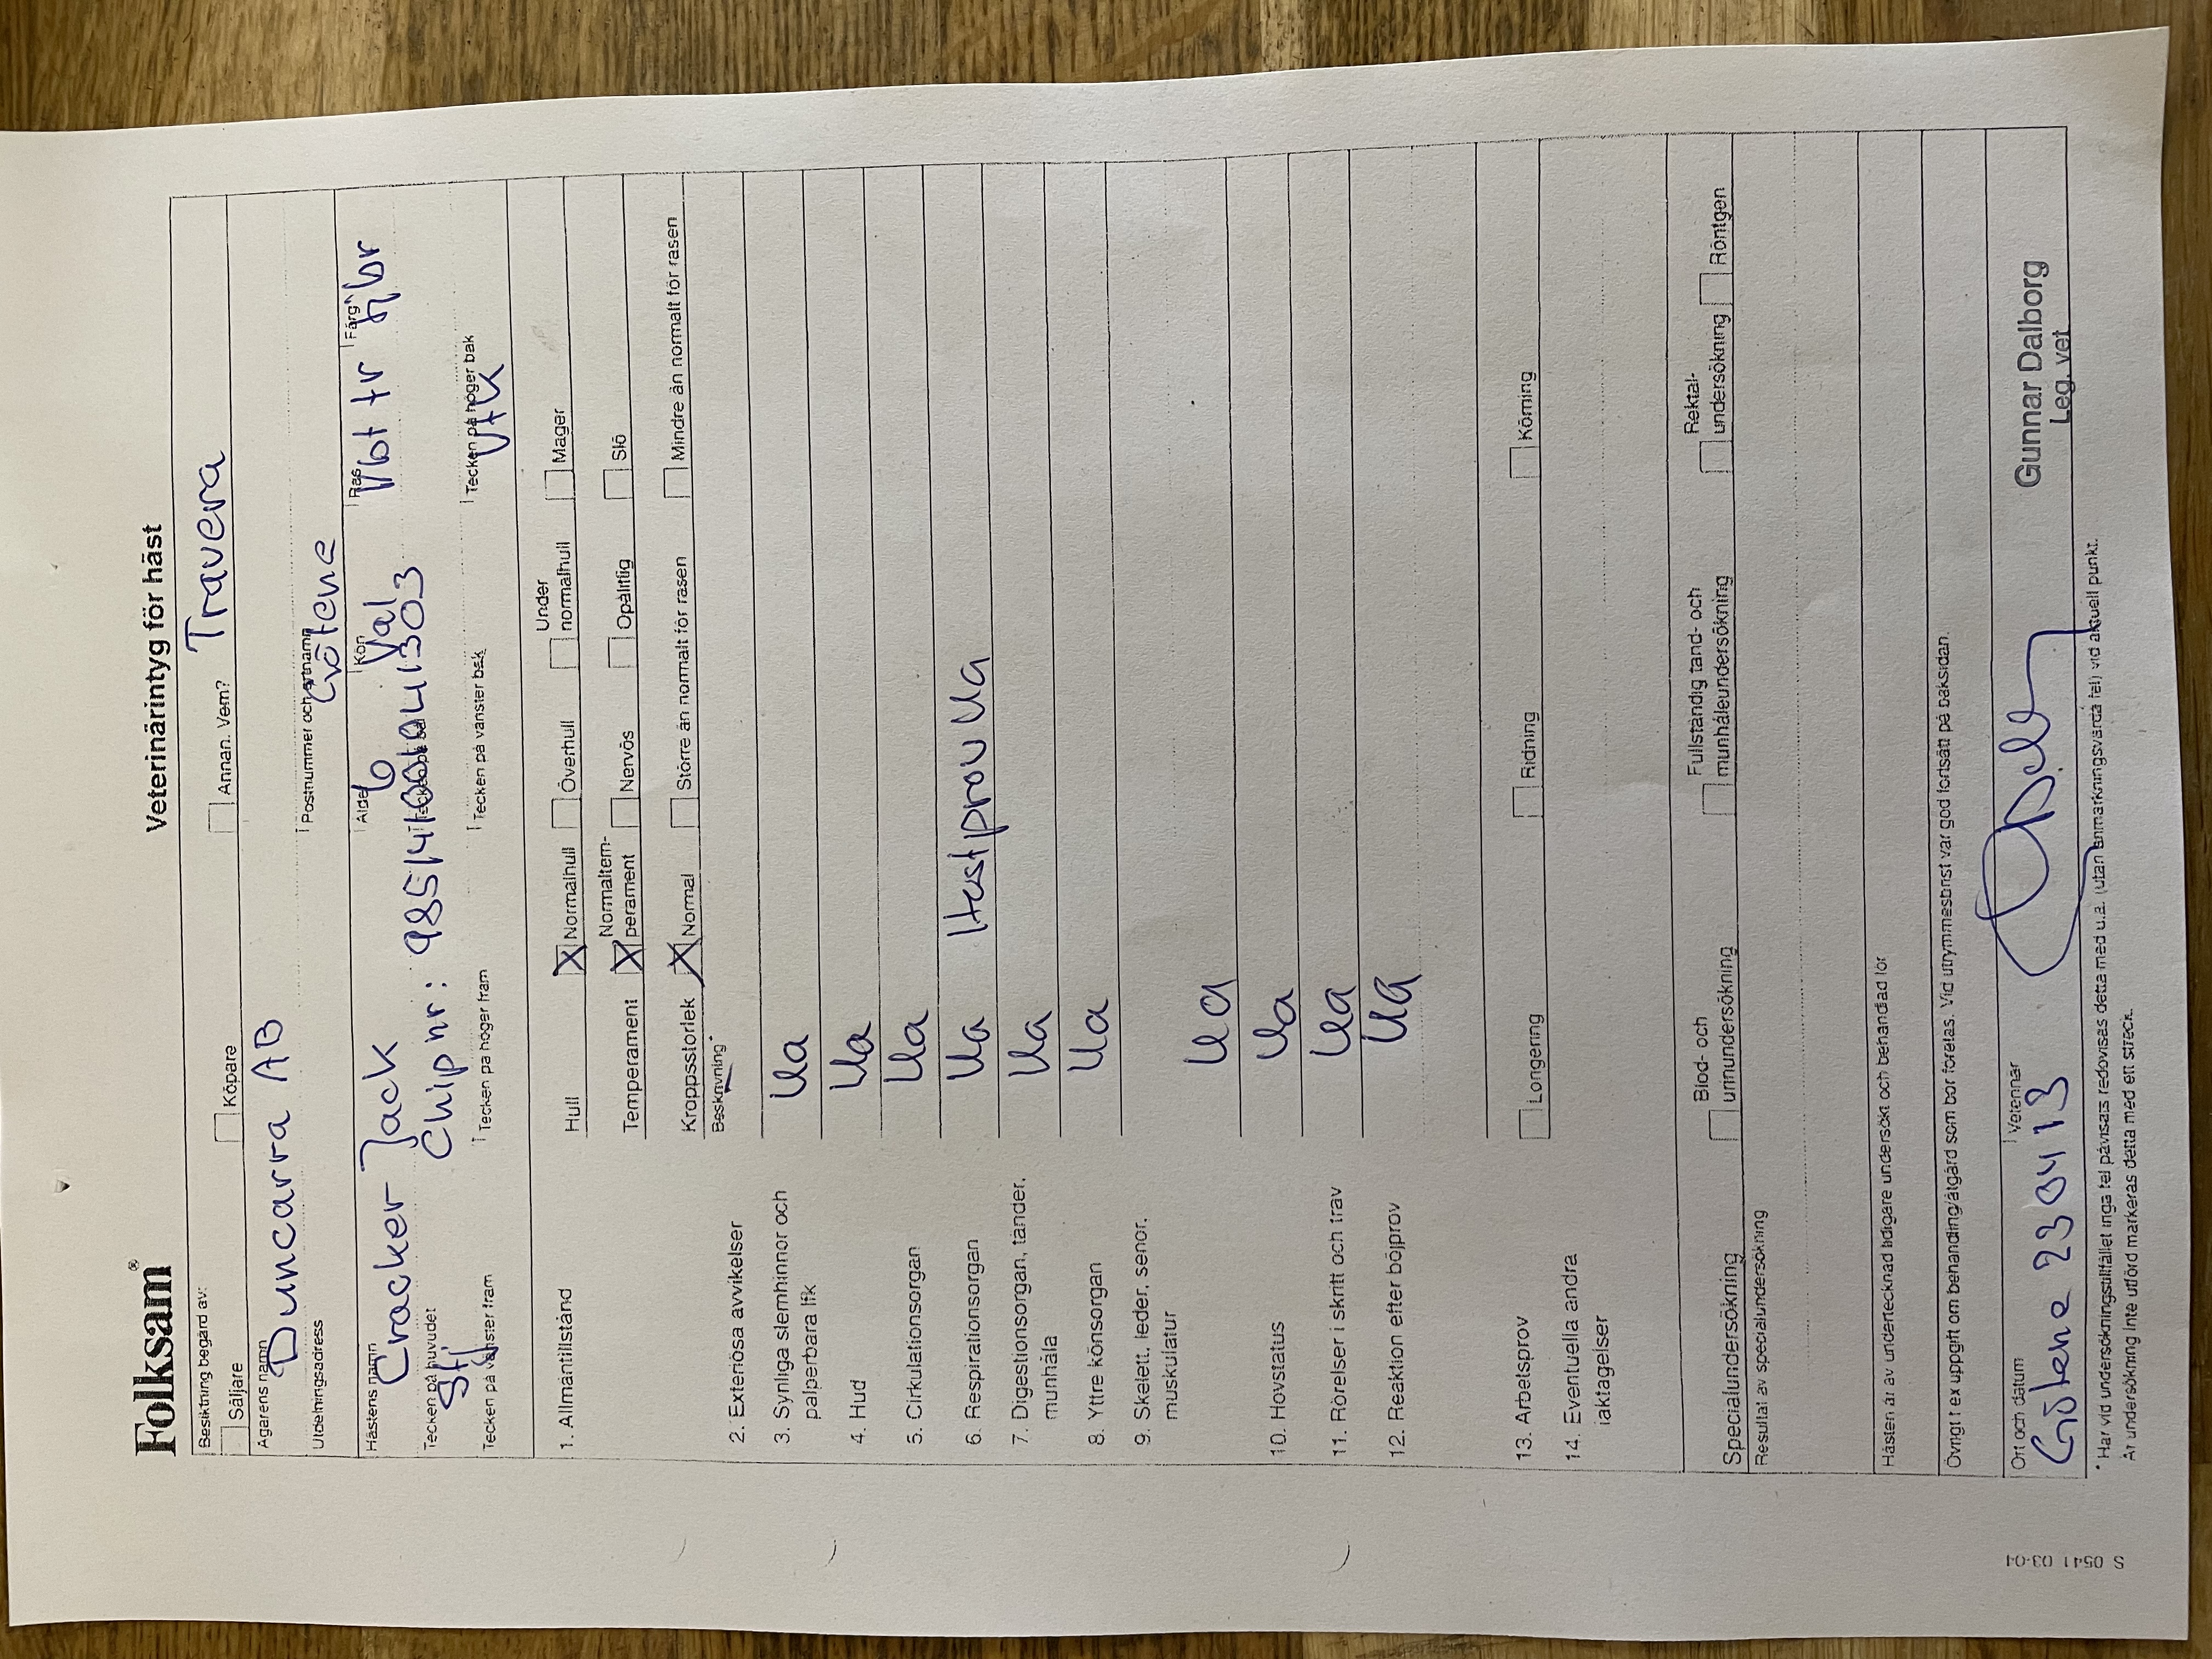 Folksam®
Veterinärintyg för häst
Besiktning begärd av:
Säljare Köpare Annan. Vem? Travera
Ägarens namn
Duncarra AB
Utdelningsadress Postnummer och ortnamn
Götene
Hästens namn Ålder Kön Ras Färg
Cracker Jack 6 Val Vbt tr br
Tecken på huvudet
Chip nr:
Tecken på vänster fram Tecken på höger fram Tecken på vänster bak Tecken på höger bak
1. Allmäntillstånd Hull X Normalhull Överhull Under normalhull Mager
Temperament X Normaltem-perament Nervös Opålitlig Slö
Kroppsstorlek X Normal Större än normalt för rasen Mindre än normalt för rasen
Beskrivning*
2. Exteriösa avvikelser
3. Synliga slemhinnor och Ua
palperbara lfk
4. Hud Ua
5. Cirkulationsorgan Ua
6. Respirationsorgan Ua Hostprov Ua
7. Digestionsorgan, tänder, Ua
munhåla
8. Yttre könsorgan Ua
9. Skelett, leder, senor,
muskulatur Ua
10. Hovstatus Ua
11. Rörelser i skritt och trav Ua
12. Reaktion efter böjprov Ua
13. Arbetsprov Longering Ridning Körning
14. Eventuella andra
iakttagelser
Specialundersökning Blod- och urinundersökning Fullständig tand- och munhåleundersökning Rektal-undersökning Röntgen
Resultat av specialundersökning
Hästen är av undertecknad tidigare undersökt och behandlad för
Övrigt t ex uppgift om behandling/åtgärd som bör företas. Vid utrymmesbrist var god fortsätt på baksidan.
Ort och datum Veterinär
Götene 230413
Gunnar Dalborg
Leg. vet
* Har vid undersökningstillfället inga fel påvisats redovisas detta med u.a. (utan anmärkningsvärda fel) vid aktuell punkt.
Är undersökning inte utförd markeras detta med ett streck.
S 0541 03-04